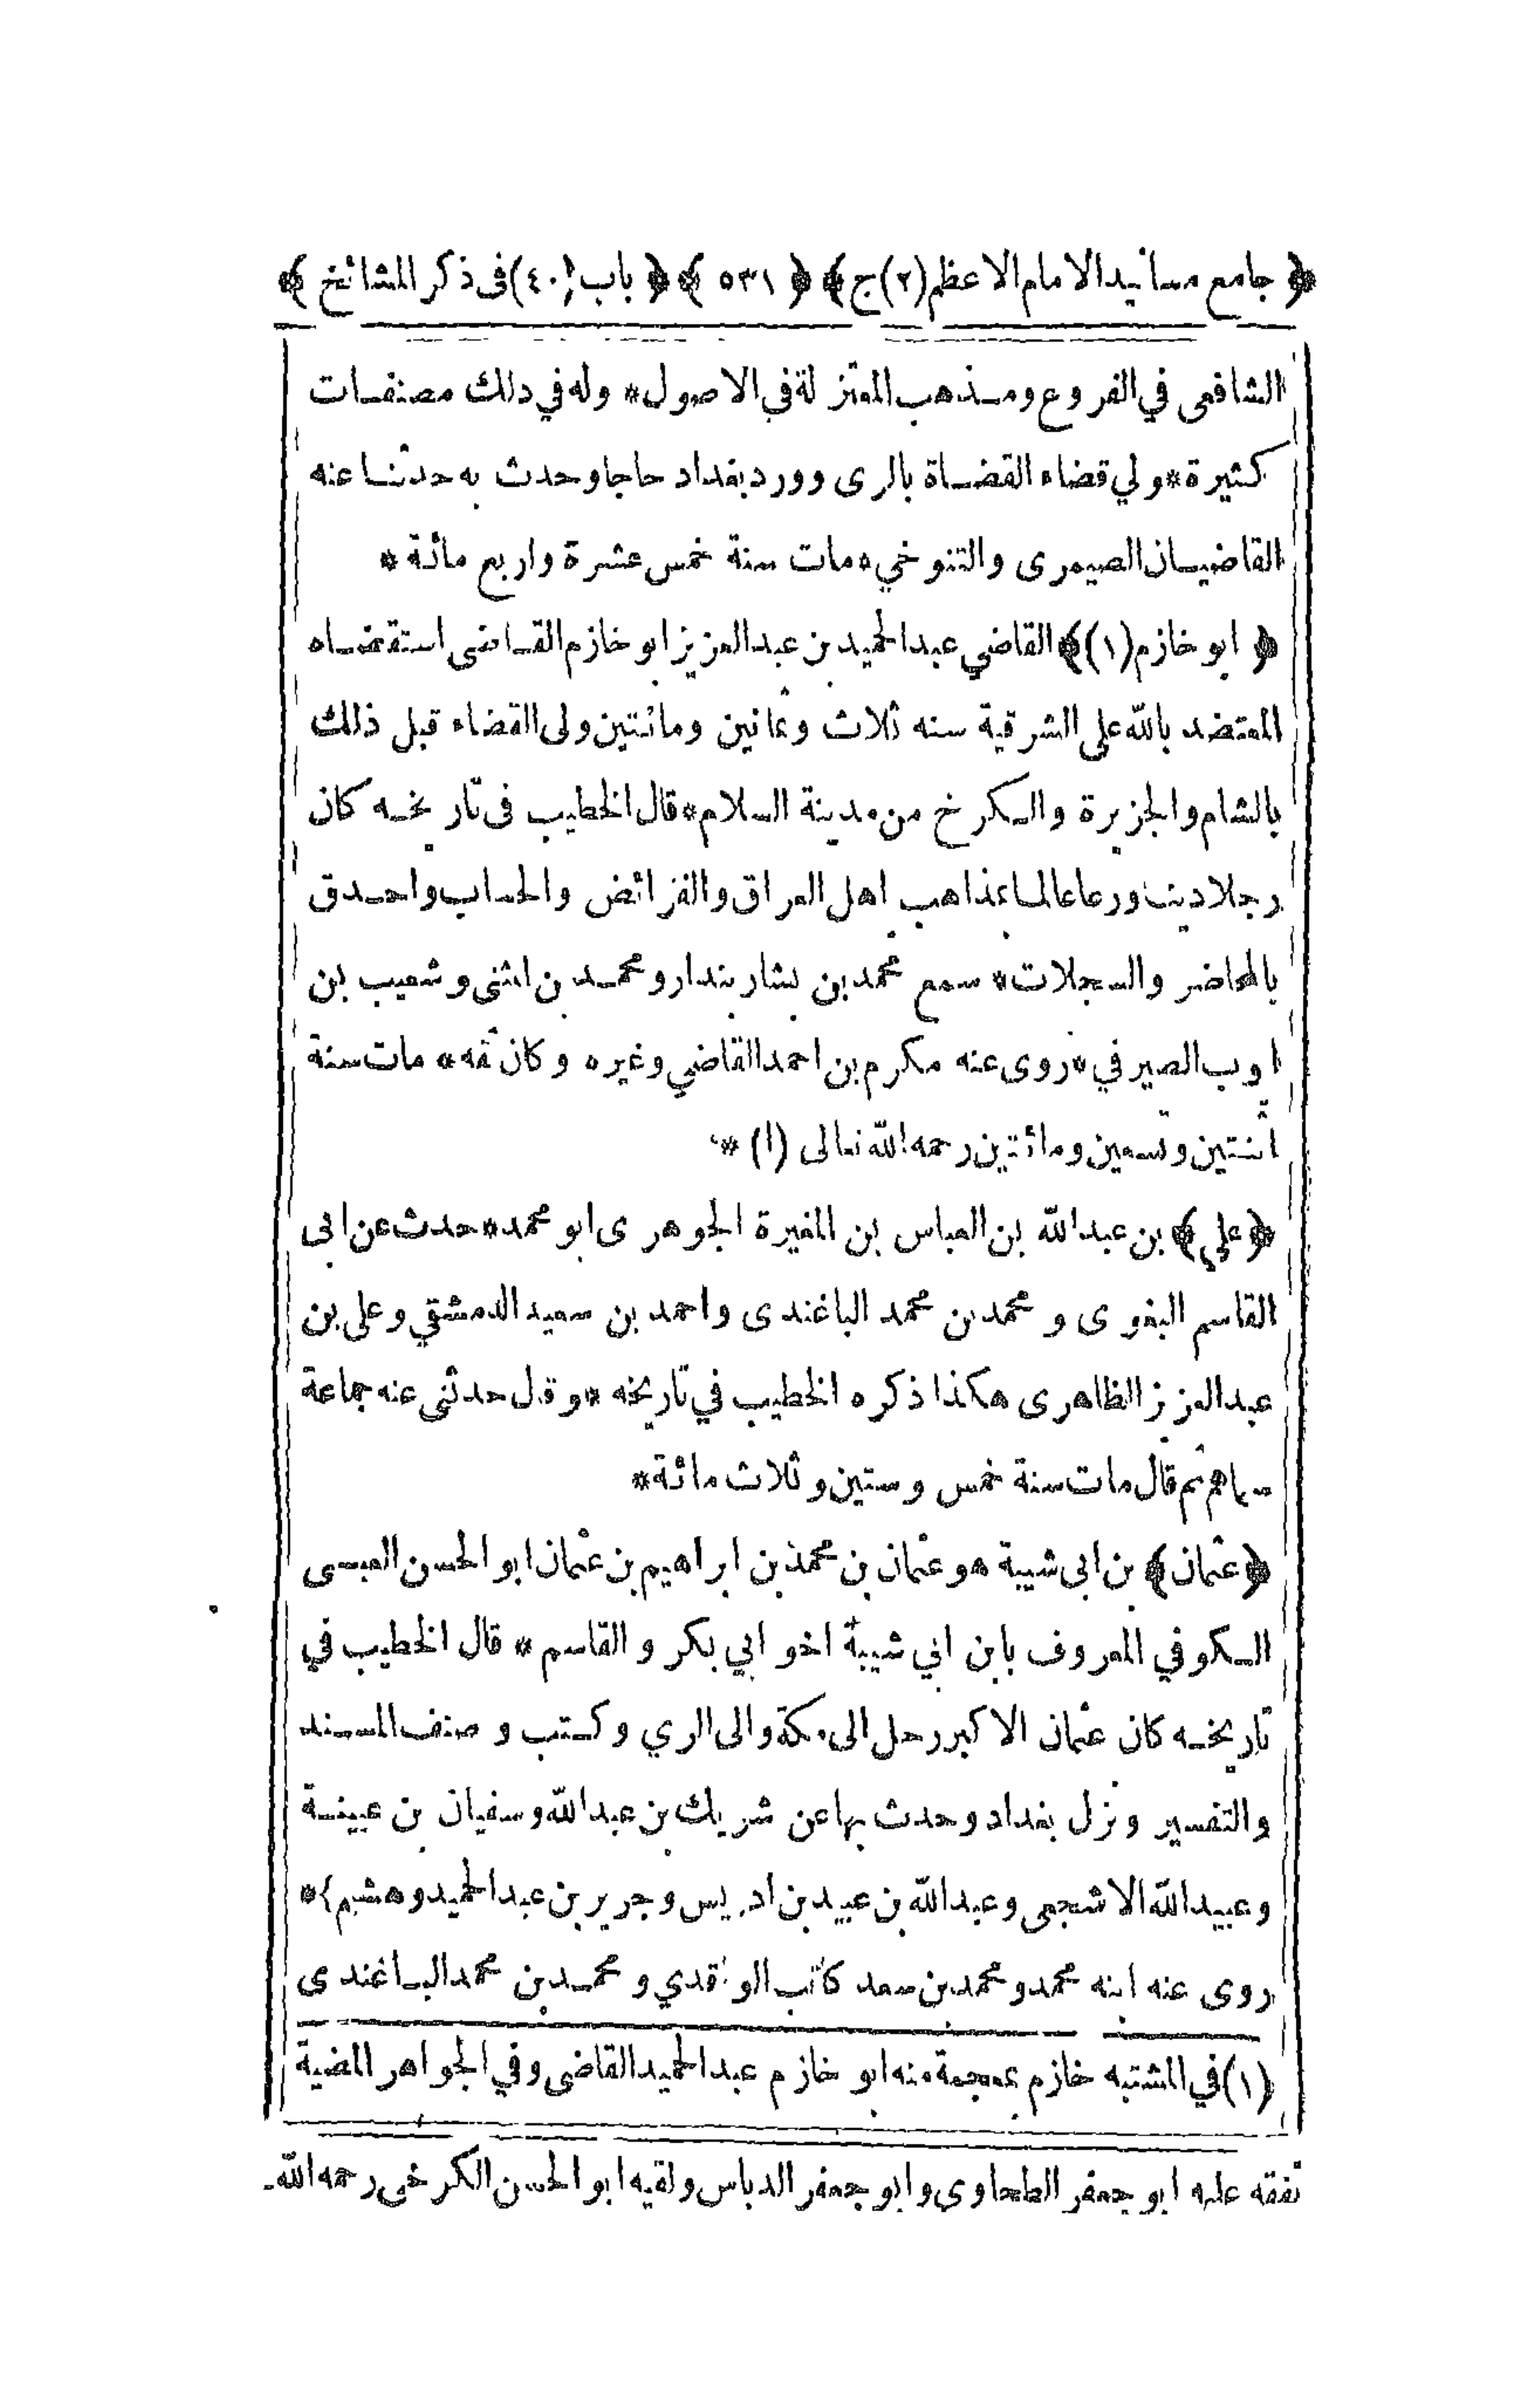 ﴿ جامع مسانيد الامام الاعظم (٢) ج ﴾ ﴿ ٥٣١ ﴾ ﴿ باب (٤٠) فى ذكر المشائخ ﴾
الشافعى في الفروع ومذهب المعتزلة في الاصول * وله في ذلك مصنفات
كثيرة * ولي قضاء القضاة بالرى وورد بغداد حاجا وحدث به حدثنا عنه
القاضيان الصيمرى والتنوخي * مات سنة خمس عشرة واربع مائة *
﴿ ابو خازم (١) ﴾ القاضي عبد الحميد بن عبد العزيز ابو خازم القاضى استقضاه
المعتضد بالله على الشرقية سنه ثلاث وثمانين ومائتين ولى القضاء قبل ذلك
بالشام والجزيرة والكرخ من مدينة السلام * قال الخطيب فى تاريخه كان
رجلا دينا ورعا عالما بمذاهب اهل العراق والفرائض والحساب واحدق
بالمحاضر والسجلات * سمع محمد بن بشار بندار ومحمد بن اثنى وشعيب بن
ايوب الصيرفي * روى عنه مكرم بن احمد القاضي وغيره وكان ثقه * مات سنة
اثنتين وتسعين ومائتين رحمه الله تعالى (١) *
﴿ علي ﴾ بن عبد الله بن العباس بن المغيرة الجوهرى ابو محمد * حدث عن ابى
القاسم البغوى و محمد بن محمد الباغندى واحمد بن سعيد الدمشقي وعلى بن
عبد العزيز الظاهرى هكذا ذكره الخطيب في تاريخه * وقال حدثنى عنه جماعة
سماهم ثم قال مات سنة خمس وستين وثلاث مائة *
﴿ عثمان ﴾ بن ابى شيبة هو عثمان بن محمد بن ابراهيم بن عثمان ابو الحسن العبسى
الكوفي المعروف بابن ابي شيبة اخو ابي بكر والقاسم * قال الخطيب في
تاريخه كان عثمان الاكبر رحل الى مكة والى الري وكتب و صنف المسند
والتفسير ونزل بغداد وحدث بها عن شريك بن عبد الله وسفيان بن عيينة
وعبيد الله الاشجعى وعبد الله بن عبيد بن ادريس وجرير بن عبد الحميد وهشيم } *
روى عنه ابنه محمد ومحمد بن سعد كاتب الواقدي و محمد بن محمد الباغندى
(١) في المشتبه خازم بمعجمة منه ابو خازم عبد الحميد القاضى وفي الجواهر المضية
تفقه عليه ابو جعفر الطحاوي وابو جعفر الدباس ولقيه ابو الحسن الكرخى رحمه الله